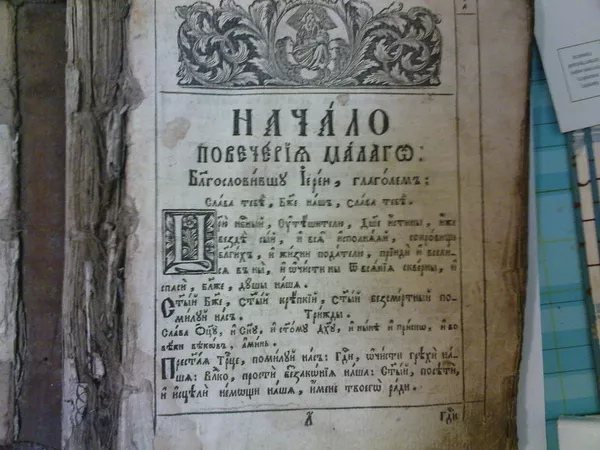 НАЧА́ЛО
ПОВЕЧЕ́РІѦ МА́ЛАГѠ:
Бл҃гослови́вшу І҆ере́и, глаго́лемъ:
Сла́ва тебѣ̀, Бж҃е на́шъ, сла́ва тебѣ̀.
Ц҃рю̀ нб҃ный, Оу҆тѣ́шителю, Дш҃е и҆́стины, и҆́же
вездѣ̀ сы́й, и҆ всѧ̑ и҆сполнѧ́ѧй, сокро́вище
бл҃ги́хъ, и҆ жи́зни пода́телю, прїидѝ и҆ всели́
сѧ въ ны̀, и҆ ѡ҆чи́сти ны ѿ всѧ́кїѧ скве́рны, и҆
спасѝ, бл҃же, дꙋ́шы на́шѧ.
Ст҃ы́й Бж҃е, Ст҃ы́й крѣ́пкїй, Ст҃ы́й безсме́ртный по-
ми́лꙋй на́съ. Три́жды.
Сла́ва Оц҃ꙋ̀, и҆ Сн҃ꙋ, и҆ ст҃о́мꙋ Дх҃ꙋ, и҆ ны́нѣ и҆ при́снѡ, и҆ во
вѣ́ки вѣкѡ́въ, а҆ми́нь.
Прест҃а́ѧ Трⷪ҇це, поми́лꙋй на́съ: Гдⷭ҇и, ѡ҆чи́сти грѣхѝ на́-
шѧ: Влⷣко, простѝ беззакѡ́нїѧ на́ша: Ст҃ы́й, посѣтѝ,
и҆ и҆сцѣлѝ не́мѡщи на́шѧ, и҆́мене твоегѡ̀ ра́ди.
А҃
Гдⷭ҇и